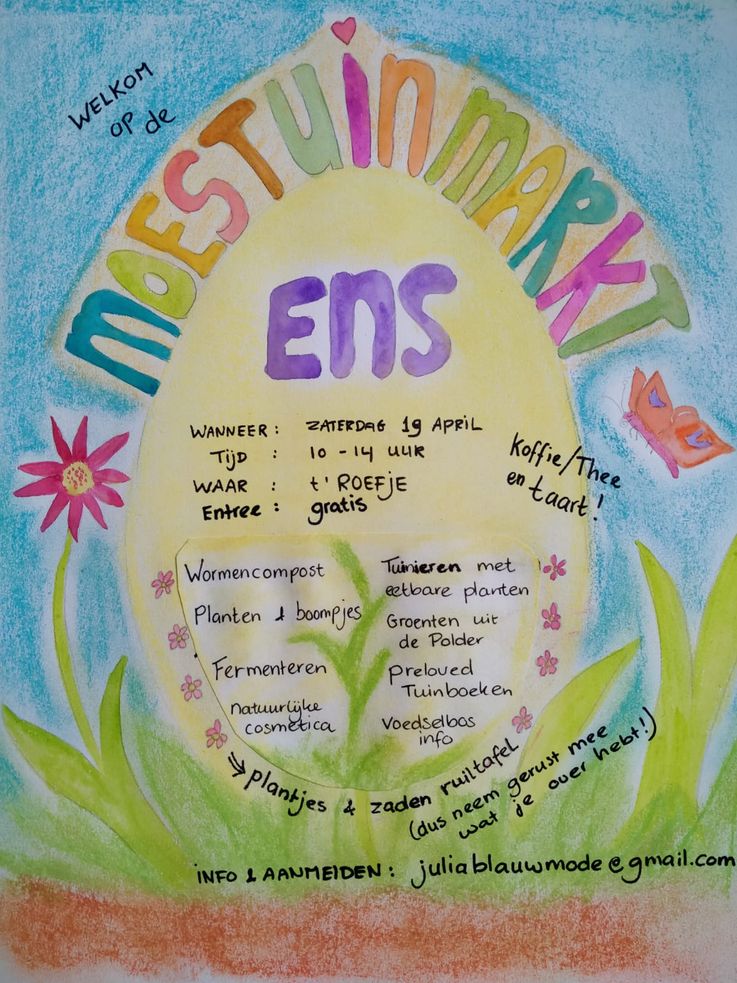 WELKOM
OP de
MOESTUINMARKT
ENS
WANNEER : ZATERDAG 19 APRIL
TIJD : 10 - 14 UUR
WAAR : t' ROEFJE
Entree : gratis
Koffie/Thee
en taart!
Wormencompost
Planten & boompjes
Fermenteren
natuurlijke
cosmetica
Tuinieren met
eetbare planten
Groenten uit
de Polder
Preloved
Tuinboeken
Voedselbos
info
⇒ plantjes & zaden ruiltafel
(dus neem gerust mee
wat je over hebt!)
INFO & AANMELDEN : juliablauwmode@gmail.com